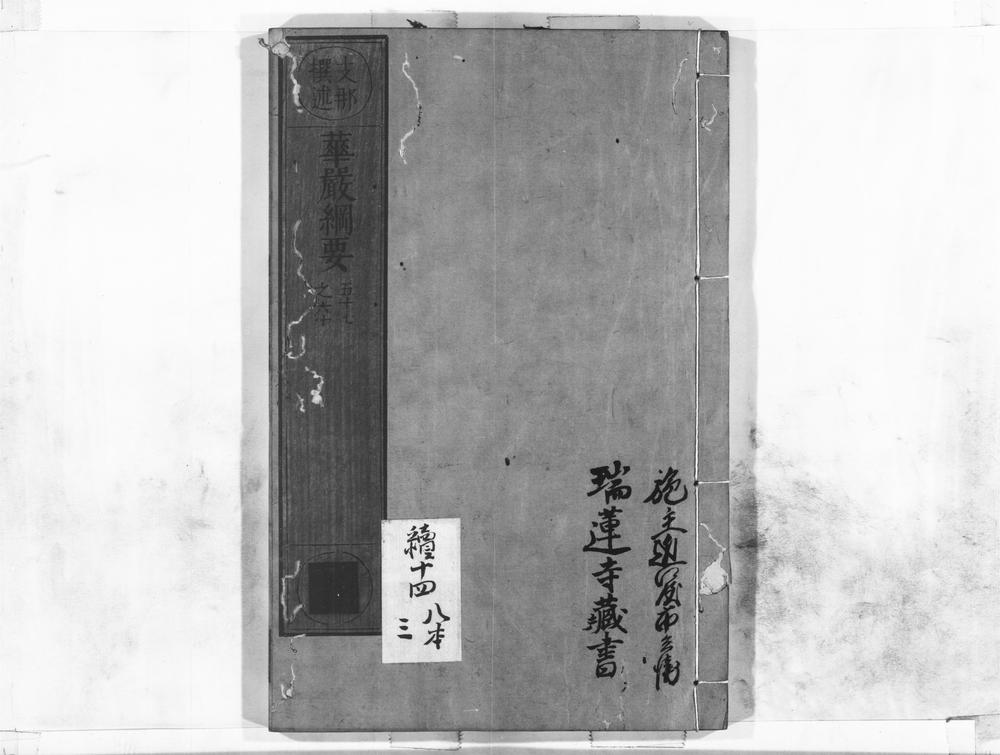 施主
瑞蓮寺藏書
續十四
八本
三
支那
撰述
華嚴綱要
五十七
之六十